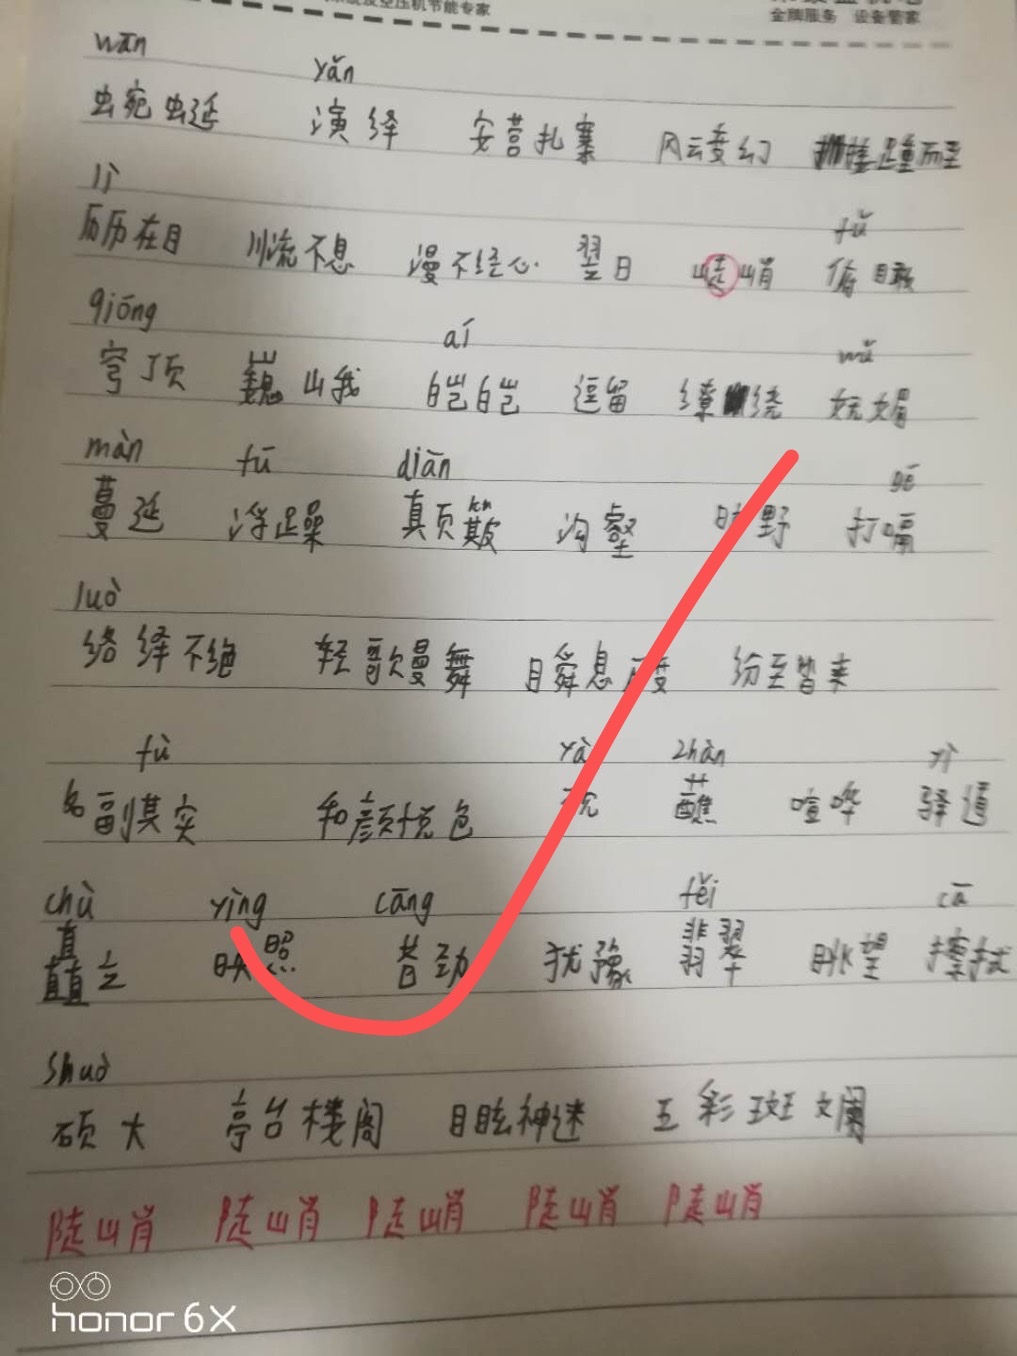 空压机节能专家
金牌服务 设备管家
wān yǎn
蜿蜒 演绎 安营扎寨 风云变幻 接踵而至
lì fǔ
历历在目 川流不息 漫不经心 翌日 峭 俯瞰
qióng ái wǔ
穹顶 巍峨 皑皑 逗留 缭绕 妩媚
màn fú diān gé
蔓延 浮躁 颠 沟壑 旷野 打嗝
luò
络绎不绝 轻歌曼舞 瞬息 纷至皆来
fù zhàn yì
名副其实 和颜悦色 蘸 喧哗 驿道
chù yìng cāng fěi cā
矗立 映照 苍劲 犹豫 翡翠 眺望 擦拭
shuò
硕大 亭台楼阁 目眩神迷 五彩斑斓
陡峭 陡峭 陡峭 陡峭 陡峭
honor 6X